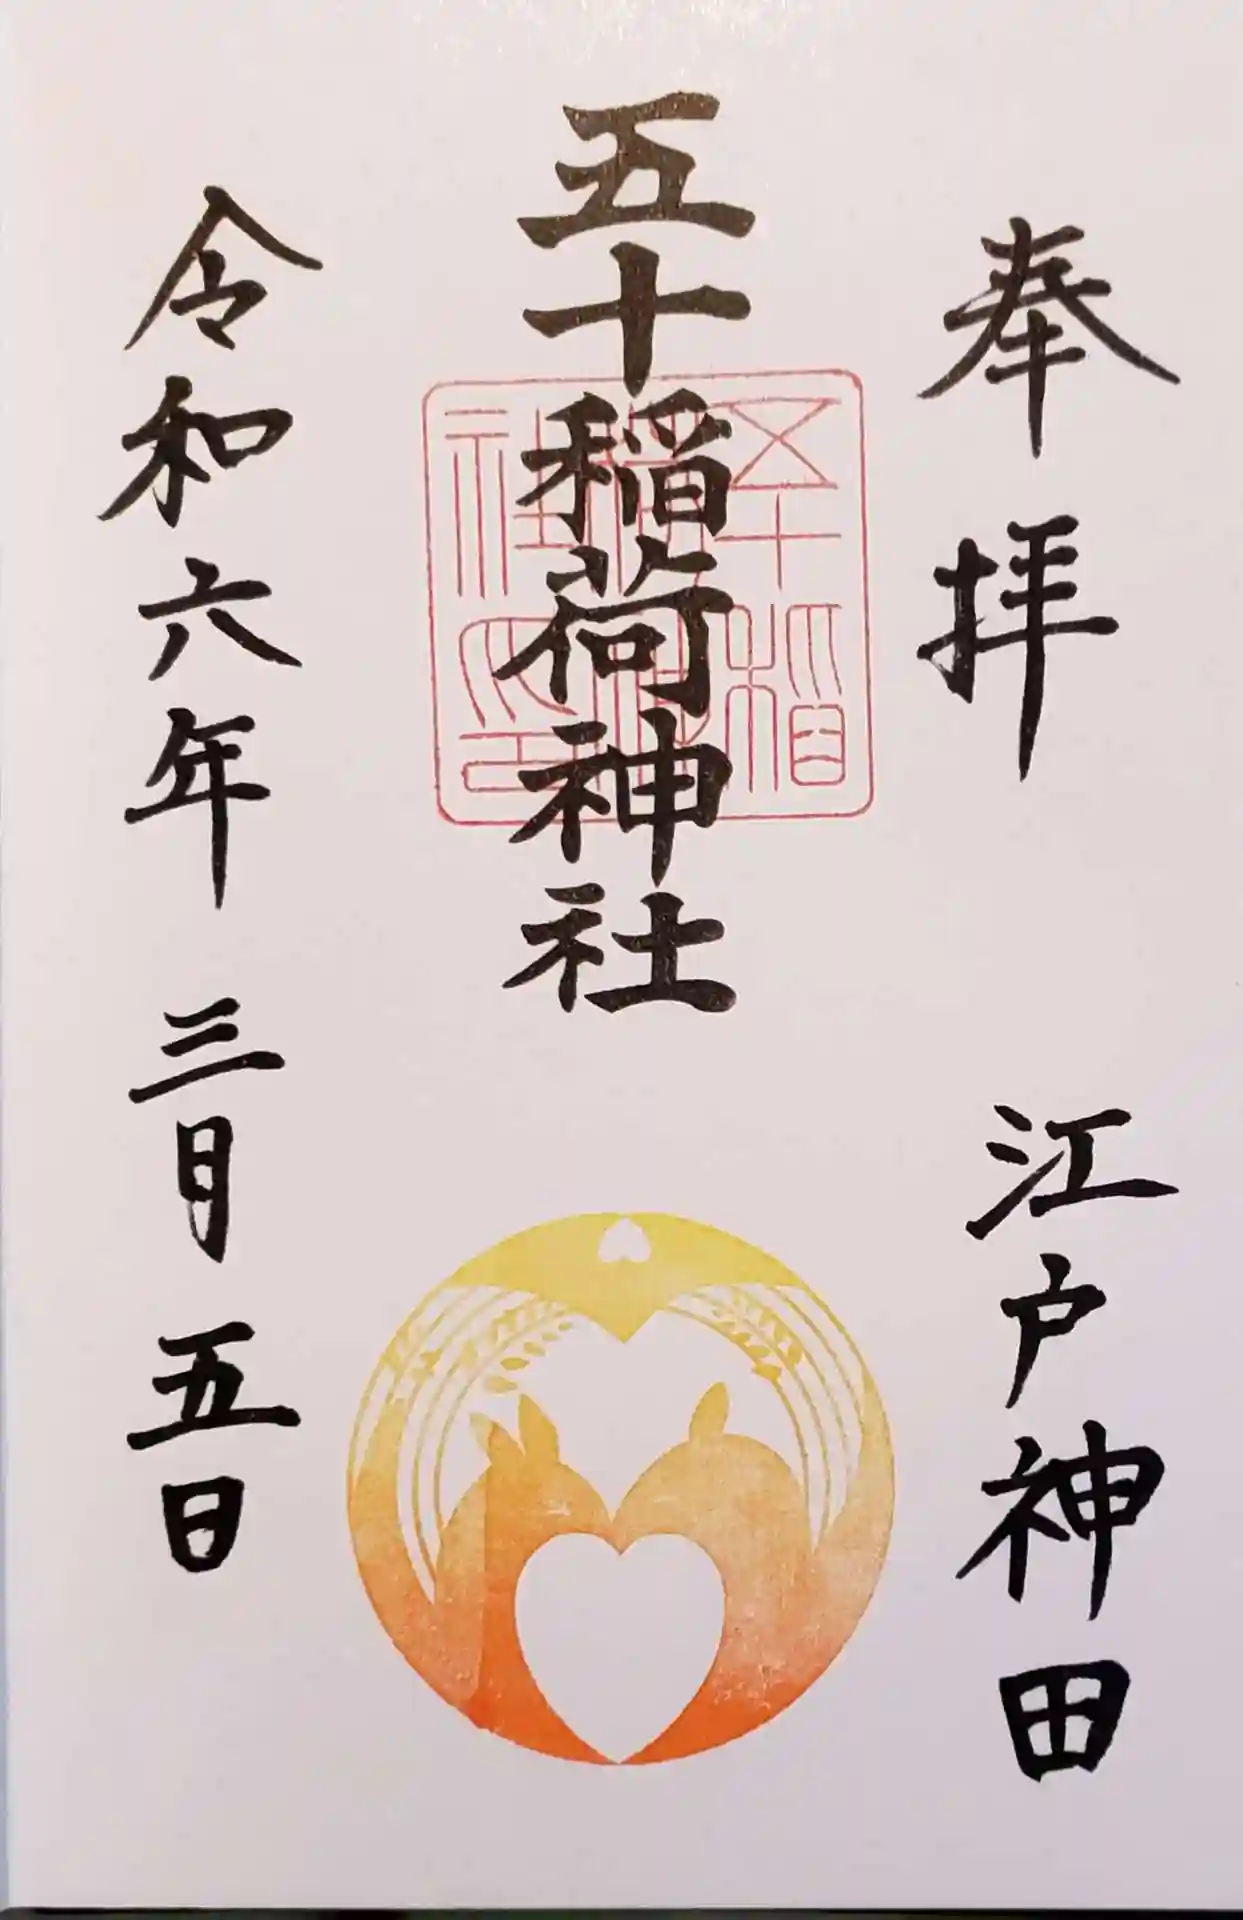 奉拝
江戸神田
五十稲荷神社
五十稲荷神社之印
令和六年 三月 五日